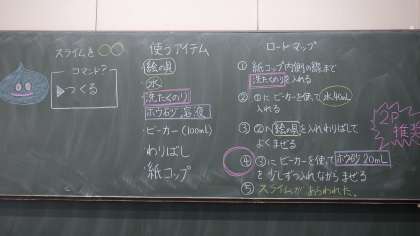 スライムを○○
コマンド?
▶つくる
使うアイテム
絵の具
水
洗たくのり
ホウ砂溶液
・ビーカー(100ml)
・わりばし
・紙コップ
ロードマップ
① 紙コップ内側の線まで
洗たくのりを入れる
② ①にビーカーを使って水40mL
入れる
③ ②に絵の具を入れわりばしで
よくまぜる
④ ③にビーカーを使ってホウ砂20mL
を少しずつ入れながらまぜる
⑤ スライムがあらわれた.
2P
推奨